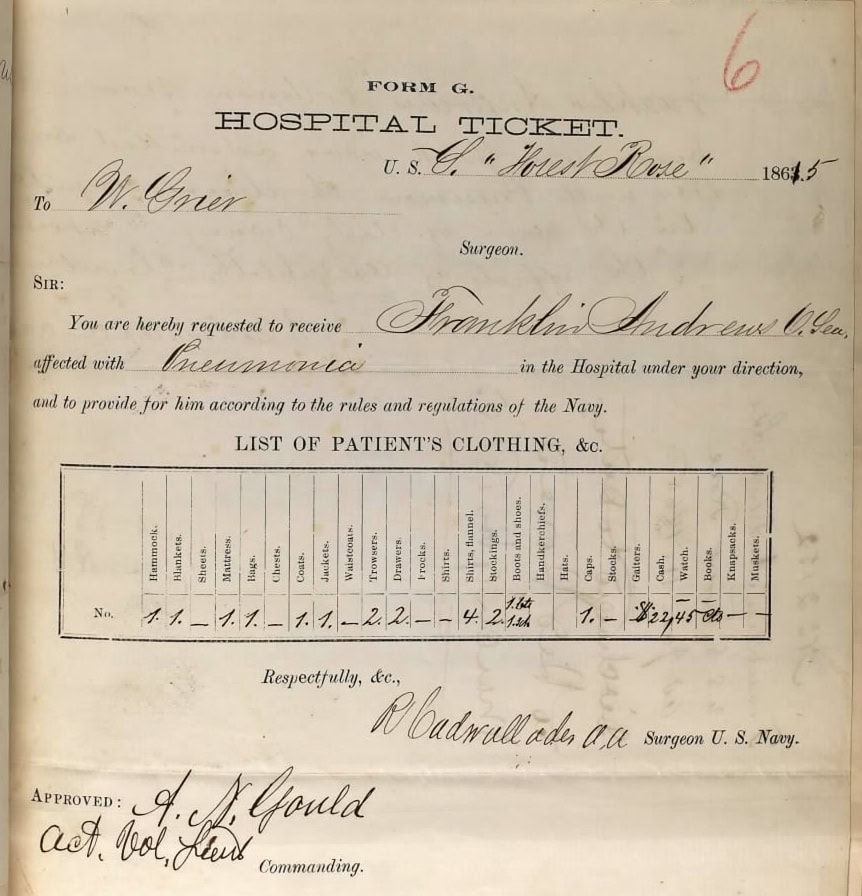 6
FORM G.
HOSPITAL TICKET.
U. S. S. "Forest Rose" 1861.5
To W. Grier
Surgeon.
SIR:
You are hereby requested to receive Franklin Andrews O. Sea.
affected with Pneumonia in the Hospital under your direction,
and to provide for him according to the rules and regulations of the Navy.
LIST OF PATIENT'S CLOTHING, &c.
Hammock. Blankets. Sheets. Mattress. Bags. Chests. Coats. Jackets. Waistcoats. Trowsers. Drawers. Frocks. Shirts. Shirts, flannel. Stockings. Boots and shoes. Handkerchiefs. Hats. Caps. Stocks. Gaiters. Cash. Watch. Books. Knapsacks. Muskets.
No. 1. 1. – 1. 1. – 1. 1. – 2. 2. – – 4. 2. 1. bts 1. sh 1. – $22,45 cts – –
Respectfully, &c.,
R Cadwallader a, a Surgeon U. S. Navy.
APPROVED: A. N. Gould
Act. Vol. Lieut
Commanding.